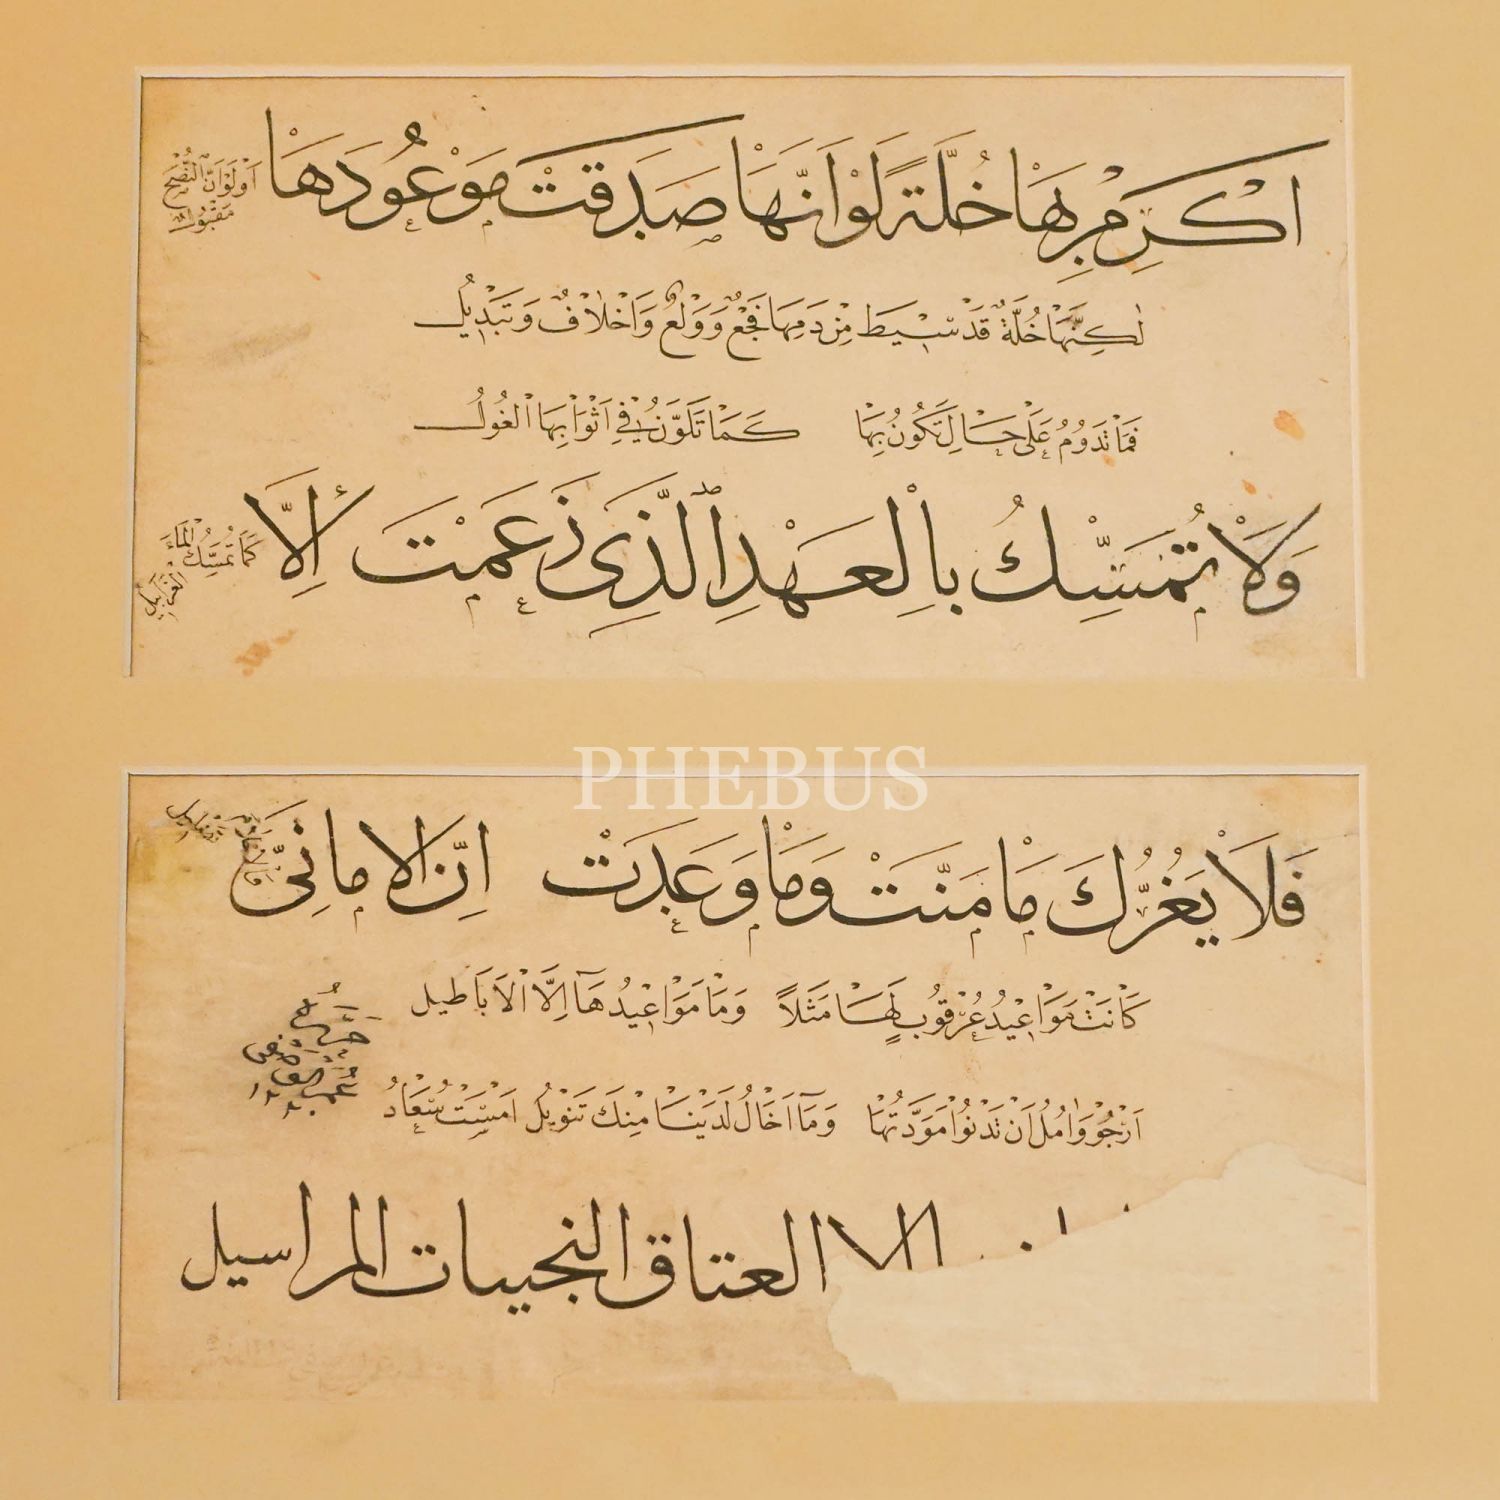 اَكْرِمْ بِهَا خُلَّةً لَوْ اَنَّهَا صَدَقَتْ مَوْعُودَهَا اَوْ لَوَ اَنَّ النُّصْحَ مَقْبُولُ
لٰكِنَّهَا خُلَّةٌ قَدْ سِيْطَ مِنْ دَمِهَا فَجْعٌ وَوَلْعٌ وَاِخْلَافٌ وَتَبْدِيْلُ
فَمَا تَدُوْمُ عَلَى حَالٍ تَكُوْنُ بِهَا كَمَا تَلَوَّنُ فِي اَثْوَابِهَا الْغُوْلُ
وَلَا تُمَسِّكُ بِالْعَهْدِ الَّذِي زَعَمَتْ اِلَّا كَمَا تُمَسِّكُ الْمَاءَ الْغَرَابِيْلُ
PHEBUS
فَلَا يَغُرُّكَ مَا مَنَّتْ وَمَا وَعَدَتْ اِنَّ الْاَمَانِيَّ
كَانَتْ مَوَاعِيْدُ عُرْقُوْبٍ لَهَا مَثَلًا وَمَا مَوَاعِيْدُهَا اِلَّا الْاَبَاطِيْل
اَرْجُوْ وَاٰمُلُ اَنْ تَدْنُوْ مَوَدَّتُهَا وَمَا اَخَالُ لَدَيْنَا مِنْكَ تَنْوِيْلُ اَمْسَتْ سُعَادُ
الا العتاق النجيبات المراسيل